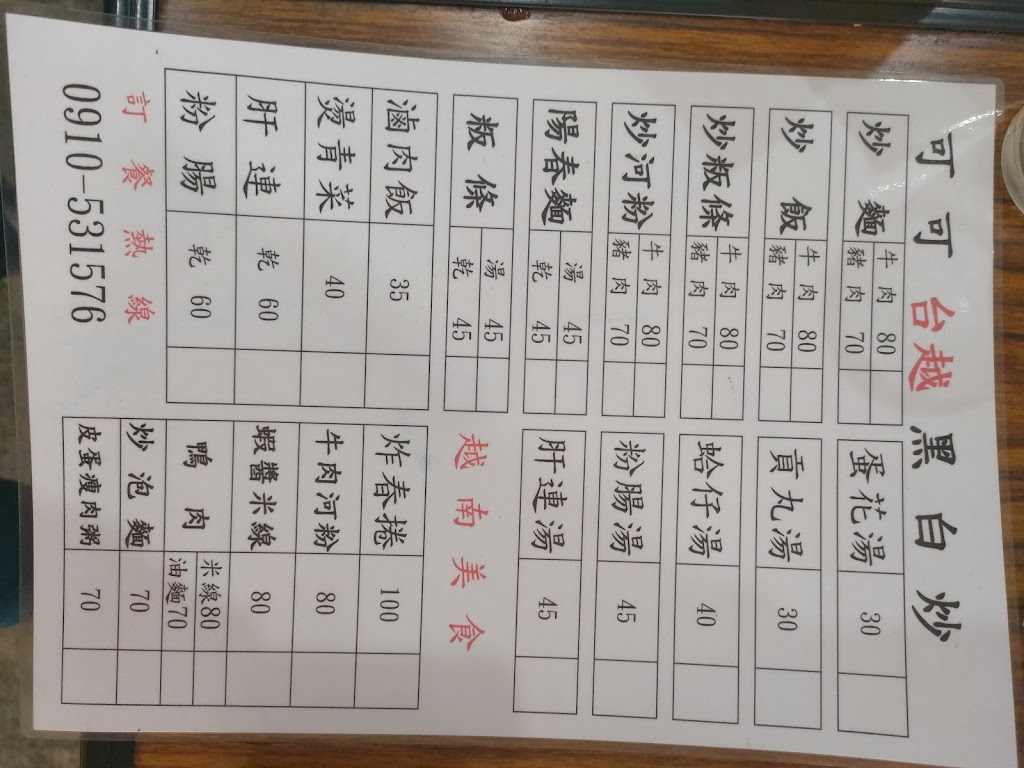 可可台越黑白炒
炒麵 牛肉 80
豬肉 70
炒飯 牛肉 80
豬肉 70
炒粄條 牛肉 80
豬肉 70
炒河粉 牛肉 80
豬肉 70
陽春麵 湯 45
乾 45
粄條 湯 45
乾 45
滷肉飯 35
燙青菜 40
肝連 乾 60
粉腸 乾 60
蛋花湯 30
貢丸湯 30
蛤仔湯 40
粉腸湯 45
肝連湯 45
越南美食
炸春捲 100
牛肉河粉 80
蝦醬米線 80
鴨肉 米線80
油麵70
炒泡麵 70
皮蛋瘦肉粥 70
訂餐熱線
0910-531576